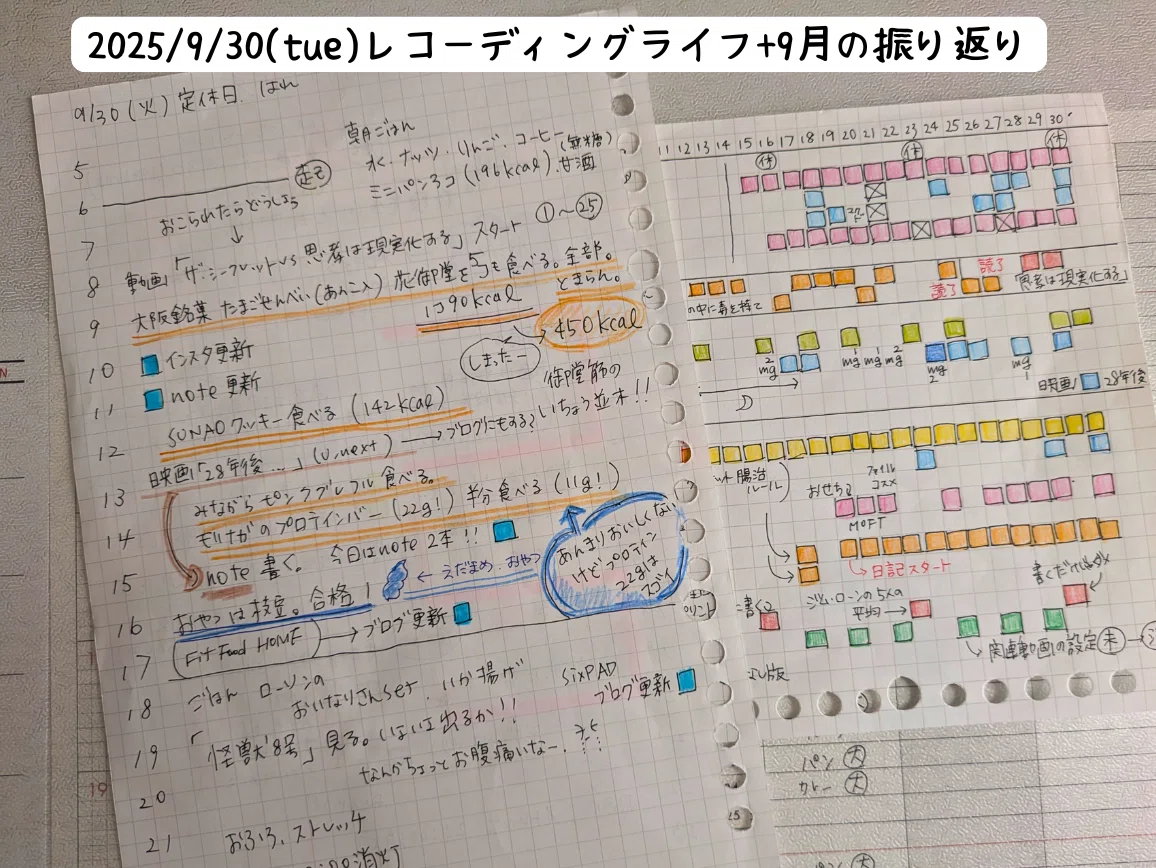 2025/9/30(tue)レコーディングライフ+9月の振り返り
9/30 (火) 定休日. はれ
朝ごはん
水. ナッツ. りんご. コーヒー(無糖)
ミニパン3コ (196kcal). 甘酒
5
起
6
おこられたらどうしよう
↓
7
動画「ザ・シークレットvs思考は現実化する」スタート ①〜㉕
8
大阪銘菓 たまごせんべい(あんこ入) 御堂を5コも食べる。全部。
とまらん。
9
1コ90kcal → 450kcal
しまったー
10
インスタ更新
note更新
御堂筋の
いちょう並木!!
11
SUNAOクッキー食べる (142kcal)
12
映画「28年後...」(U-next) → ブログにもする?
13
みながらモンクブレフル食べる。
モリナガのプロテインバー (22g!) 半分食べる (11g!)
14
note書く。 今日はnote2本!!
あんまりおいしくない
けどプロテイン
22gは
スゴイ
15
← えだまめ. おやつ
おやつは枝豆。合格!
16
Fit Food HOME → ブログ更新
17
ごはん ローソンの
おいなりさんset. いか揚げ
SIXPAD
ブログ更新
18
「怪獣8号」見る。いないよ出るか!!
19
なんかちょっとお腹痛いなー.
20
21
おふろ. ストレッチ
消灯
11 12 13 14 15 16 17 18 19 20 21 22 23 24 25 26 27 28 29 30
休 休 休
読了 読了「思考は現実化する」
の中に毒を捨て
mg 2 mg 1 mg 1 mg 2 mg 2 mg 1
D
映画 28年後
腸治
ルール)
おせち
ファイル
コスメ
MOFT
→日記スタート
書くだけ
書く
ジム・ローンの5人の
平均→
→関連動画の設定 未
版
パン 大
カレー 大
パン 大
19
25